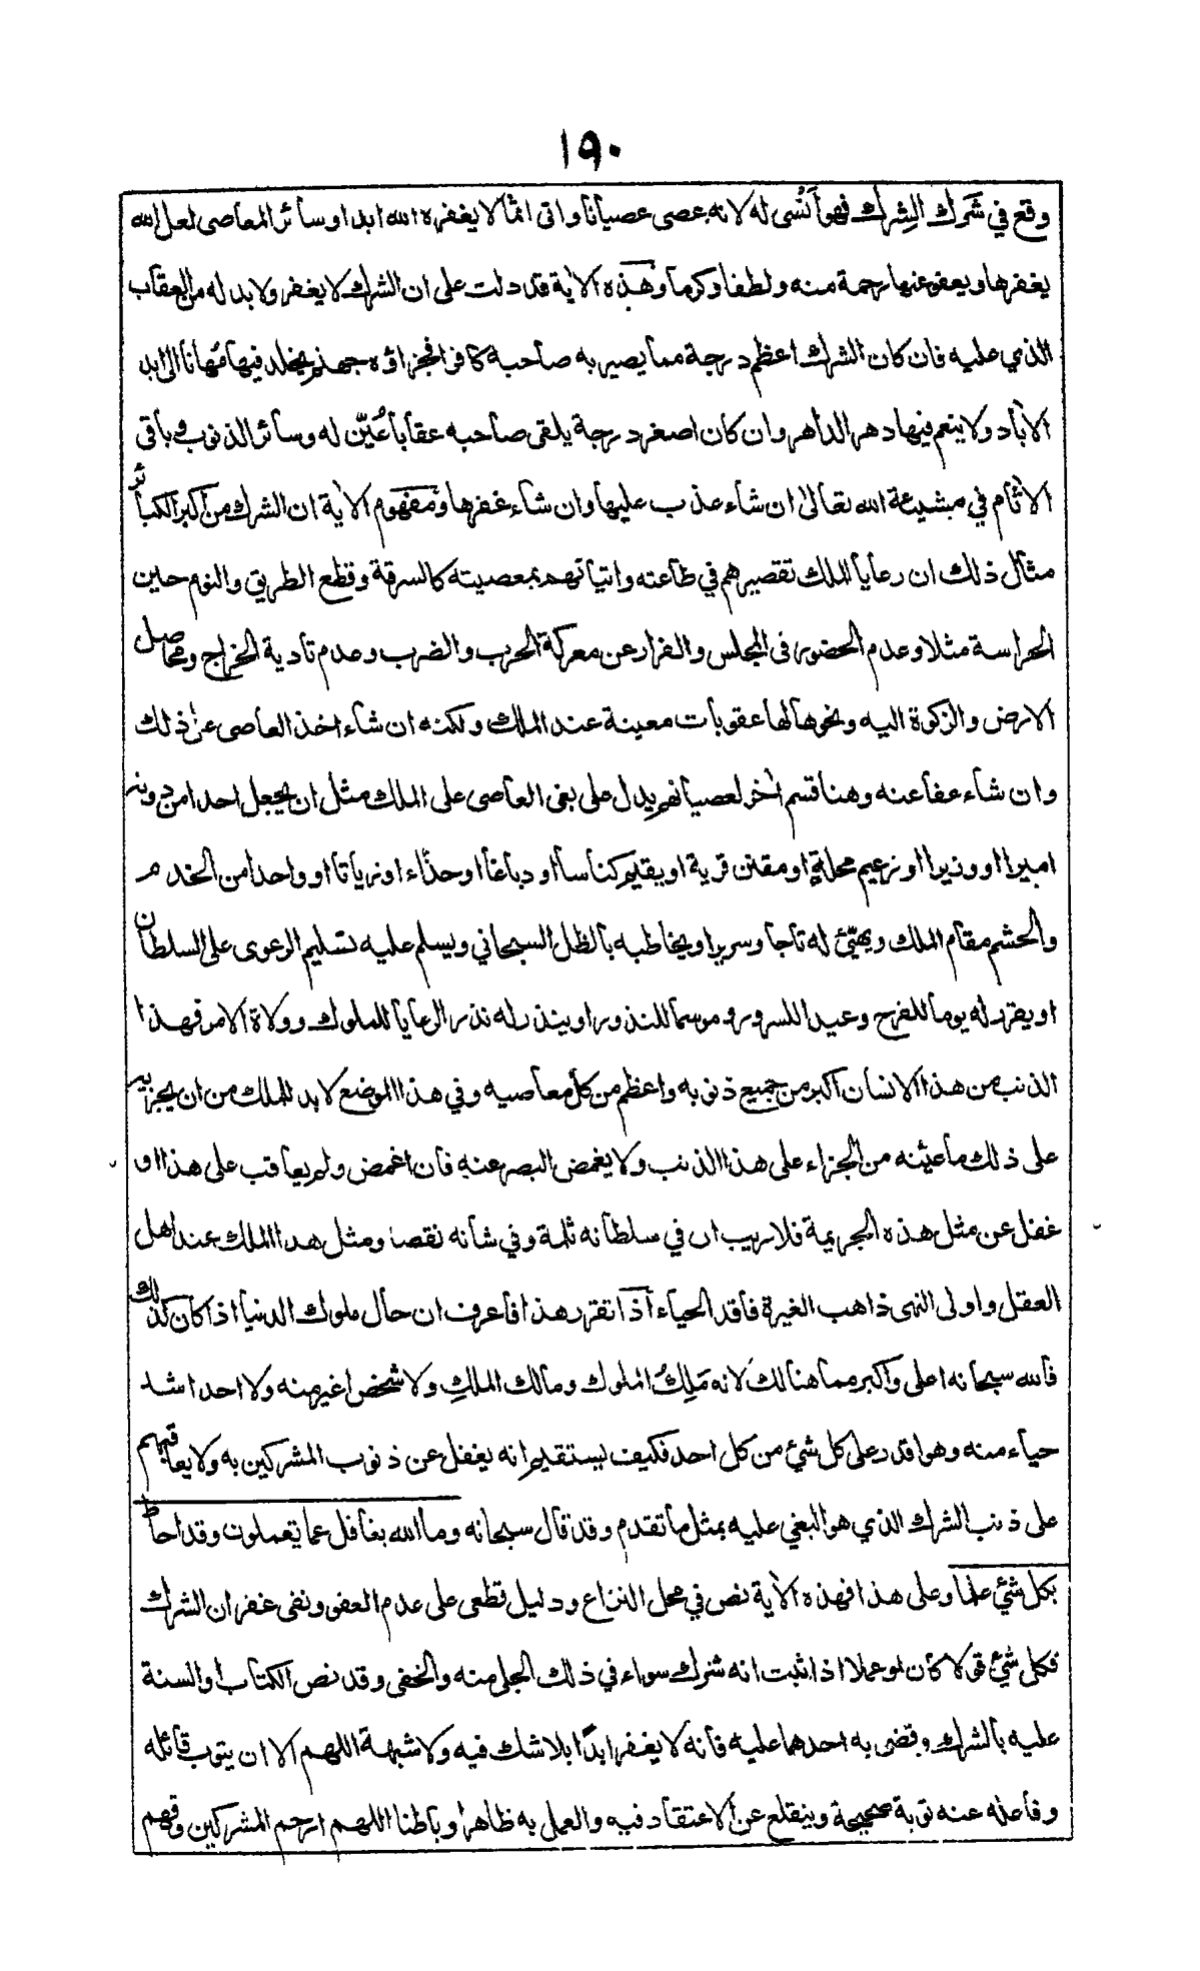 ١٩٠
وقع في شَرَك الشِرك فهو أَنْسى له لانه عصى عصيانا واتى اثما لا يغفره الله ابدا وسائر المعاصى لعل الله
يغفرها ويعفو عنها رحمة منه ولطفا وكرما وهذه الاية قد دلت على ان الشرك لا يغفر ولا بد له من العقاب
الذي عليه فان كان الشرك اعظم درجة مما يصير به صاحبه كافرا فجزاؤه جهنم يخلد فيها مُهانا الى ابد
الآباد ولا ينعم فيها دهر الداهر وان كان اصغر درجة يلقى صاحبه عقابا عُيّن له وسائر الذنوب وباقى
الآثام في مشيئة الله تعالى ان شاء عذب عليها وان شاء غفرها ومفهوم الاية ان الشرك من اكبر الكبائر
مثال ذلك ان رعايا الملك تقصيرهم في طاعته واتيانهم بمعصيته كالسرقة وقطع الطريق والنوم حين
الحراسة مثلا وعدم الحضور فى المجلس والفرار عن معركة الحرب والضرب وعدم تأدية الخراج ومحاصل
الارض والزكوة اليه ونحوها لها عقوبات معينة عند الملك ولكنه ان شاء اخذ العاصى عن ذلك
وان شاء عفا عنه وهنا قسم آخر لعصيانهم يدل على بغى العاصى على الملك مثل ان يجعل احدا من دونه
اميرا او وزيرا او زعيم محلةٍ او مقنن قرية او يقيم كناسا او دباغا او حذّاء او زياتا او واحدا من الخدم
والحشم مقام الملك ويهيّئ له تاجا وسريرا ويخاطبه بالظل السبحاني ويسلم عليه تسليم الرعوى على السلطان
او يقرر له يوما للفرح وعيدا للسرور وموسما للنذور او ينذر له نذر الرعايا للملوك وولاة الامر فهذا
الذنب من هذا الانسان اكبر من جميع ذنوبه واعظم من كل معاصيه وفي هذا الموضع لا بد للملك من ان يجزيه
على ذلك ما عيّنه من الجزاء على هذا الذنب ولا يغمض البصر عنه فان اغمض ولم يعاقب على هذا او
غفل عن مثل هذه الجريمة فلا ريب ان في سلطانه ثلمة وفي شأنه نقصا ومثل هذا الملك عند اهل
العقل واولى النهى ذاهب الغيرة فاقد الحياء اذا تقرر هذا فاعرف ان حال ملوك الدنيا اذا كان كذلك
فالله سبحانه اعلى واكبر مما هنالك لانه مَلِكُ الملوك ومالك الملكِ ولا شخص اغير منه ولا احد اشد
حياء منه وهو اقدر على كل شئ من كل احد فكيف يستقيم انه يغفل عن ذنوب المشركين به ولا يعاقبهم
على ذنب الشرك الذي هو البغي عليه بمثل ما تقدم وقد قال سبحانه وما الله بغافل عما تعملون وقد احاط
بكل شئ علما وعلى هذا فهذه الاية نص في محل النزاع ودليل قطعى على عدم العفو ونفى غفران الشرك
فكل شئ قولا كان او عملا اذا ثبت انه شرك سواء في ذلك الجلى منه والخفى وقد نص الكتاب او السنة
عليه بالشرك وقضى به احدهما عليه فانه لا يغفر ابدًا بلا شك فيه ولا شبهة اللهم الا ان يتوب قائله
وفاعله عنه توبة صحيحة وينقلع عن الاعتقاد فيه والعمل به ظاهرا وباطنا اللهم ارحم المشركين وقهم